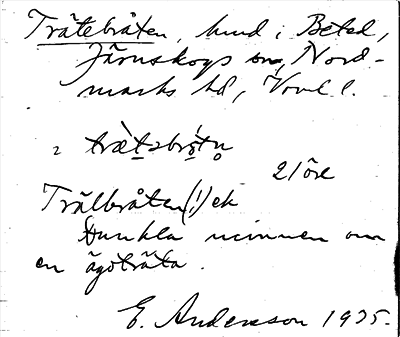 Trätebråten, hmd i Beted,
Järnskogs sn, Nord-
marks hd, Vrml l.
2 træ̀təbrø̀tn̥
21 öre
Trälbråten (!) ek
Dunkla minnen om
en ägoträta.
E. Anderson 1925.